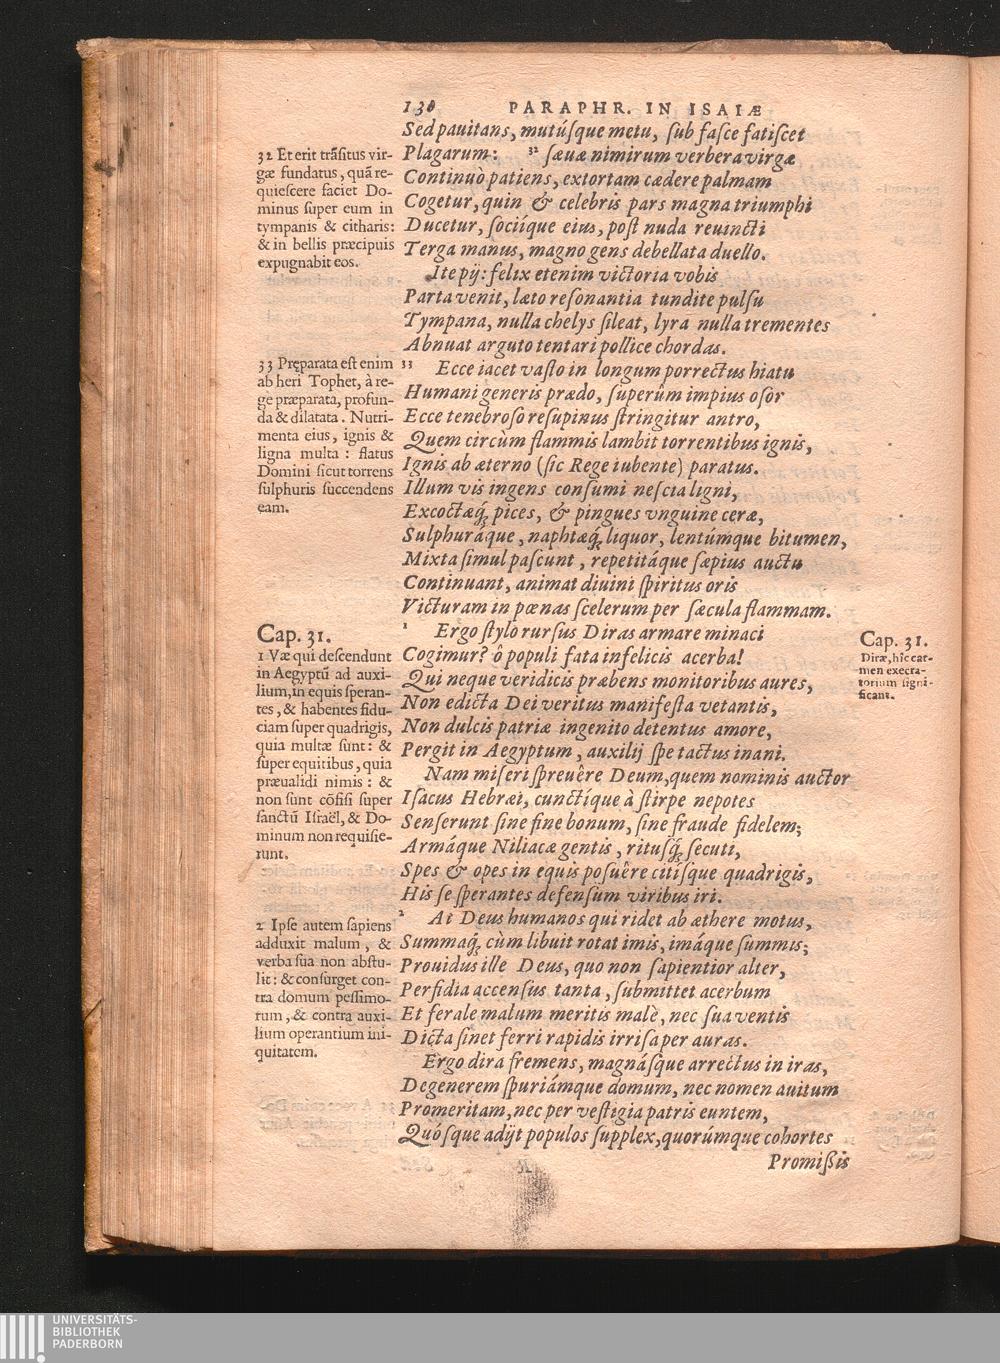 130 PARAPHR. IN ISAIÆ
Sed pauitans, mutúſque metu, ſub faſce fatiſcet
Plagarum: 32 ſæuæ nimirum verbera virgæ
Continuò patiens, extortam cædere palmam
Cogetur, quin & celebris pars magna triumphi
Ducetur, ſociíque eius, poſt nuda reuincti
Terga manus, magno gens debellata duello.
Ite pij: felix etenim victoria vobis
Parta venit, læto reſonantia tundite pulſu
Tympana, nulla chelys ſileat, lyra nulla trementes
Abnuat arguto tentari pollice chordas.
33 Ecce iacet vaſto in longum porrectus hiatu
Humani generis prædo, ſuperûm impius oſor
Ecce tenebroſo reſupinus ſtringitur antro,
Quem circùm flammis lambit torrentibus ignis,
Ignis ab æterno (ſic Rege iubente) paratus.
Illum vis ingens conſumi neſcia ligni,
Excoctæq́; pices, & pingues vnguine ceræ,
Sulphuráque, naphtæq́; liquor, lentúmque bitumen,
Mixta ſimul paſcunt, repetitáque ſæpius auctu
Continuant, animat diuini ſpiritus oris
Victuram in pœnas ſcelerum per ſæcula flammam.
1 Ergo ſtylo rurſus Diras armare minaci
Cogimur? ô populi fata infelicis acerba!
Qui neque veridicis præbens monitoribus aures,
Non edicta Dei veritus manifeſta vetantis,
Non dulcis patriæ ingenito detentus amore,
Pergit in Aegyptum, auxilij ſpe tactus inani.
Nam miſeri ſpreuêre Deum, quem nominis auctor
Iſacus Hebræi, cunctíque à ſtirpe nepotes
Senſerunt ſine fine bonum, ſine fraude fidelem;
Armáque Niliacæ gentis, rituſq́; ſecuti,
Spes & opes in equis poſuêre citíſque quadrigis,
His ſe ſperantes defenſùm viribus iri.
2 At Deus humanos qui ridet ab æthere motus,
Summaq́; cùm libuit rotat imis, imáque ſummis;
Prouidus ille Deus, quo non ſapientior alter,
Perfidia accenſus tanta, ſubmittet acerbum
Et ferale malum meritis malè, nec ſua ventis
Dicta ſinet ferri rapidis irriſa per auras.
Ergo dira fremens, magnáſque arrectus in iras,
Degenerem ſpuriámque domum, nec nomen auitum
Promeritam, nec per veſtigia patris euntem,
Quóſque adijt populos ſupplex, quorúmque cohortes
Promißis
32 Et erit trãſitus vir-
gæ fundatus, quã re-
quieſcere faciet Do-
minus ſuper eum in
tympanis & citharis:
& in bellis præcipuis
expugnabit eos.
33 Pręparata eſt enim
ab heri Tophet, à re-
ge præparata, profun-
da & dilatata. Nutri-
menta eius, ignis &
ligna multa: flatus
Domini ſicut torrens
ſulphuris ſuccendens
eam.
Cap. 31.
1 Væ qui deſcendunt
in Aegyptũ ad auxi-
lium, in equis ſperan-
tes, & habentes fidu-
ciam ſuper quadrigis,
quia multæ ſunt: &
ſuper equitibus, quia
præualidi nimis: &
non ſunt cõfiſi ſuper
ſanctũ Iſraël, & Do-
minum non requiſie-
runt.
2 Ipſe autem ſapiens
adduxit malum, &
verba ſua non abſtu-
lit: & conſurget con-
tra domum peſſimo-
rum, & contra auxi-
lium operantium ini-
quitatem.
Cap. 31.
Diræ, hîc car-
men execra-
torium ſigni-
ficant.
UNIVERSITÄTS-
BIBLIOTHEK
PADERBORN